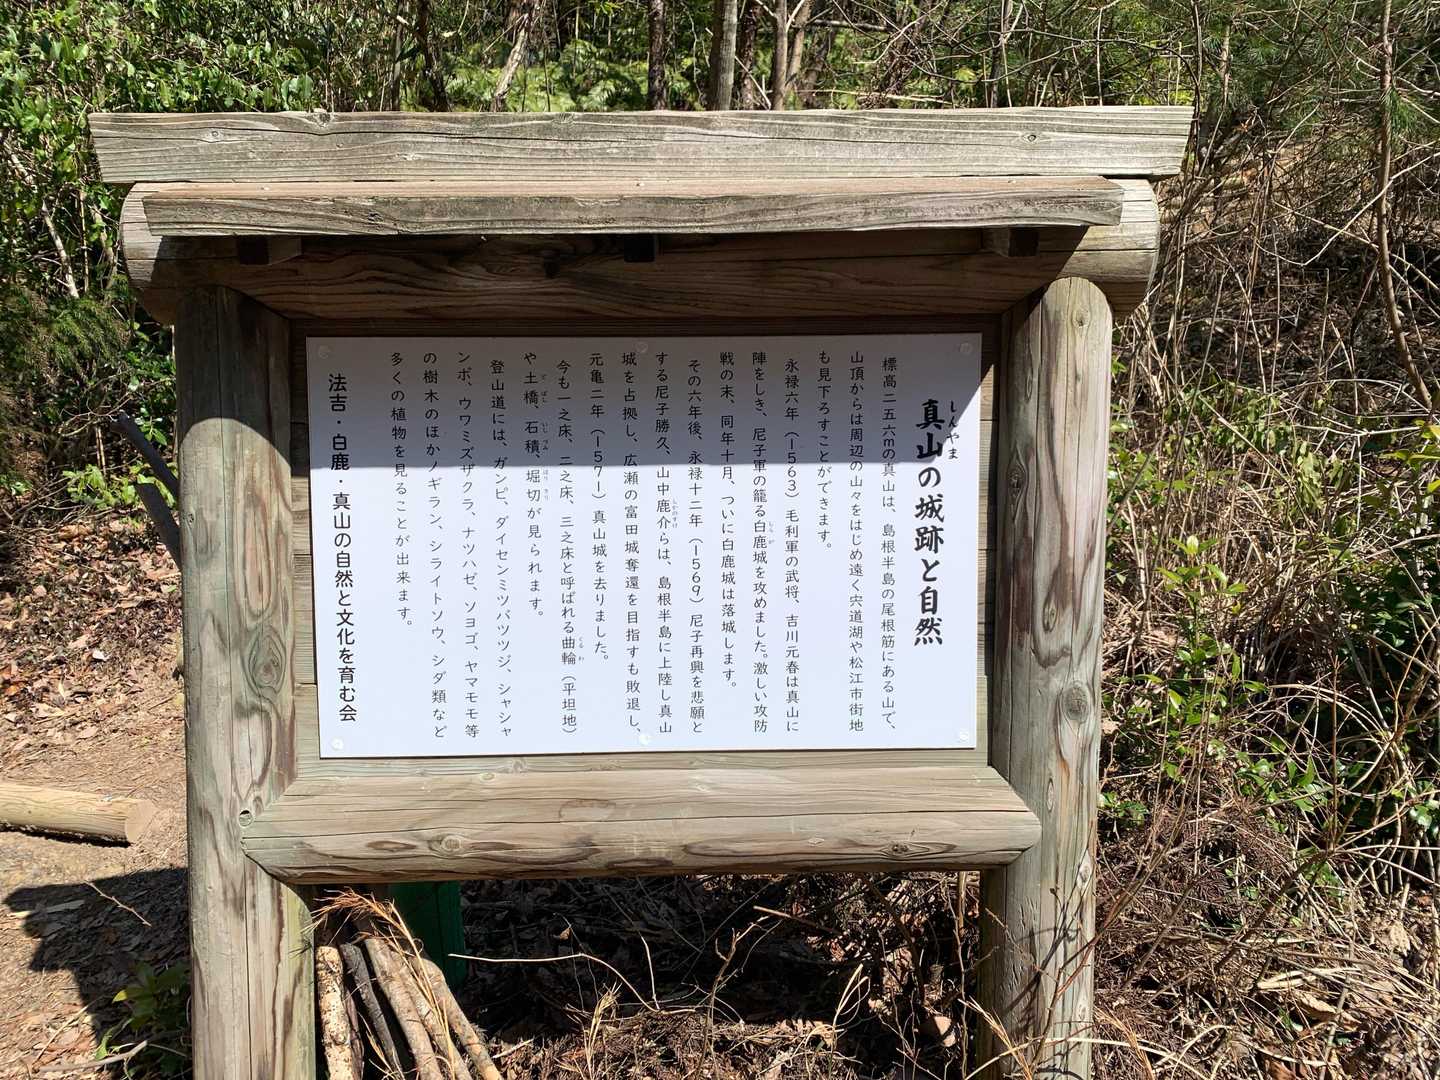 真山の城跡と自然
しんやま
標高二五六mの真山は、島根半島の尾根筋にある山で、
山頂からは周辺の山々をはじめ遠く宍道湖や松江市街地
も見下ろすことができます。
永禄六年（1563）毛利軍の武将、吉川元春は真山に
陣をしき、尼子軍の籠る白鹿城を攻めました。激しい攻防
しらが
戦の末、同年十月、ついに白鹿城は落城します。
その六年後、永禄十二年（1569）尼子再興を悲願と
する尼子勝久、山中鹿介らは、島根半島に上陸し真山
しかのすけ
城を占拠し、広瀬の富田城奪還を目指すも敗退し、
元亀二年（1571）真山城を去りました。
今も一之床、二之床、三之床と呼ばれる曲輪（平坦地）
くるわ
や土橋、石積、堀切が見られます。
どばし
いしづみ
ほりきり
登山道には、ガンピ、ダイセンミツバツツジ、シャシャ
ンボ、ウワミズザクラ、ナツハゼ、ソヨゴ、ヤマモモ等
の樹木のほかノギラン、シライトソウ、シダ類など
多くの植物を見ることが出来ます。
法吉・白鹿・真山の自然と文化を育む会